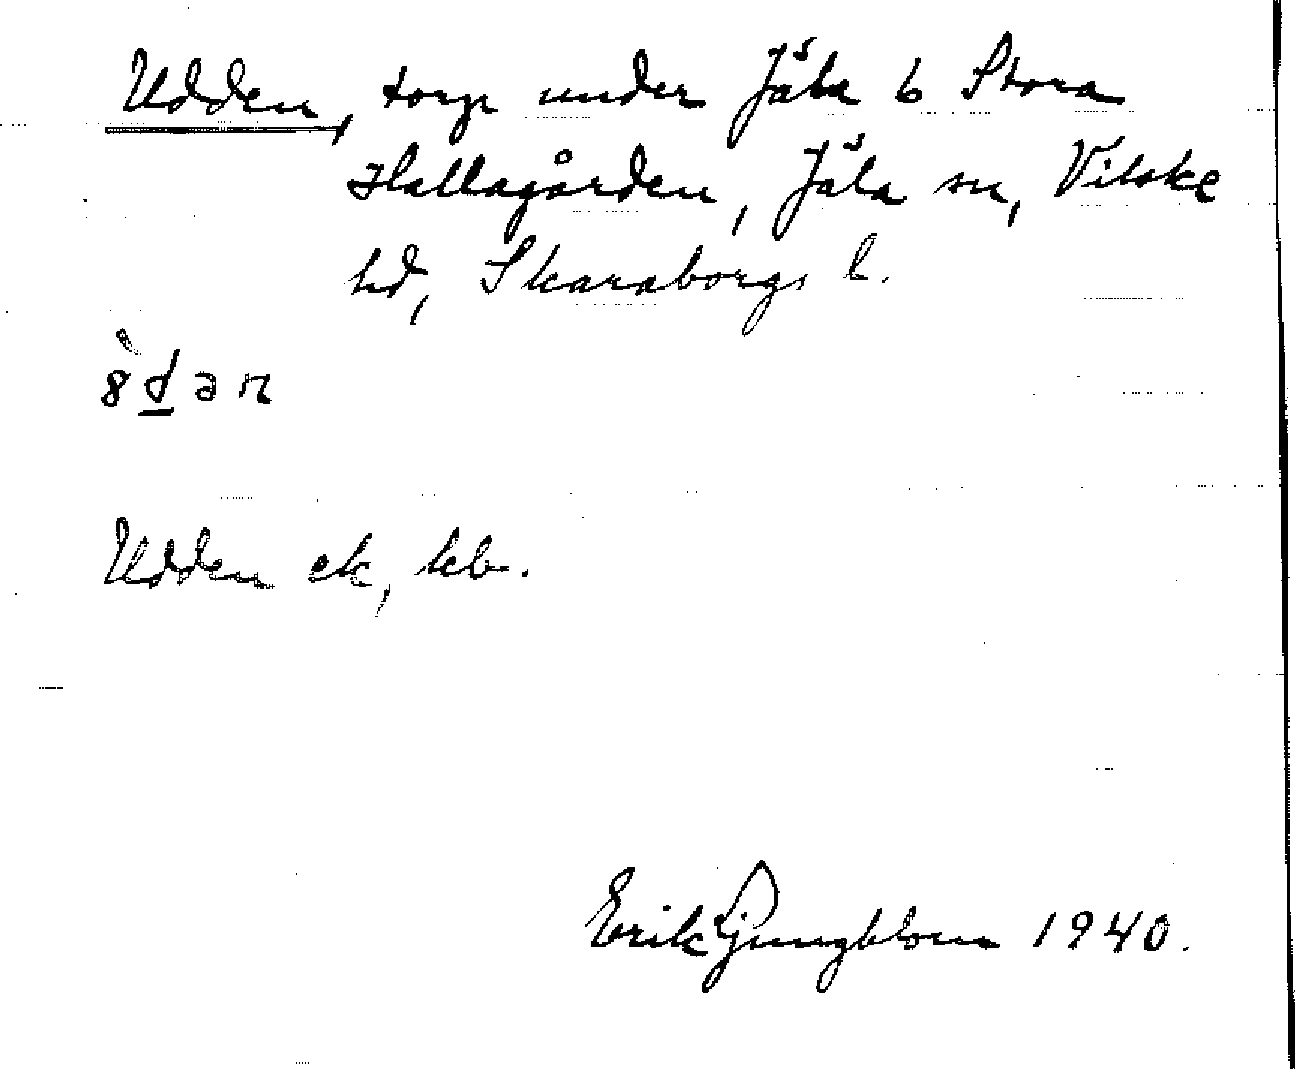 Udden, torp under Jäla 6 Stora
Hallagården, Jäla sn, Vilske
hd, Skaraborgs l.
8̀d̲ən
Udden ek, kb.
Erik Ljungblom 1940.